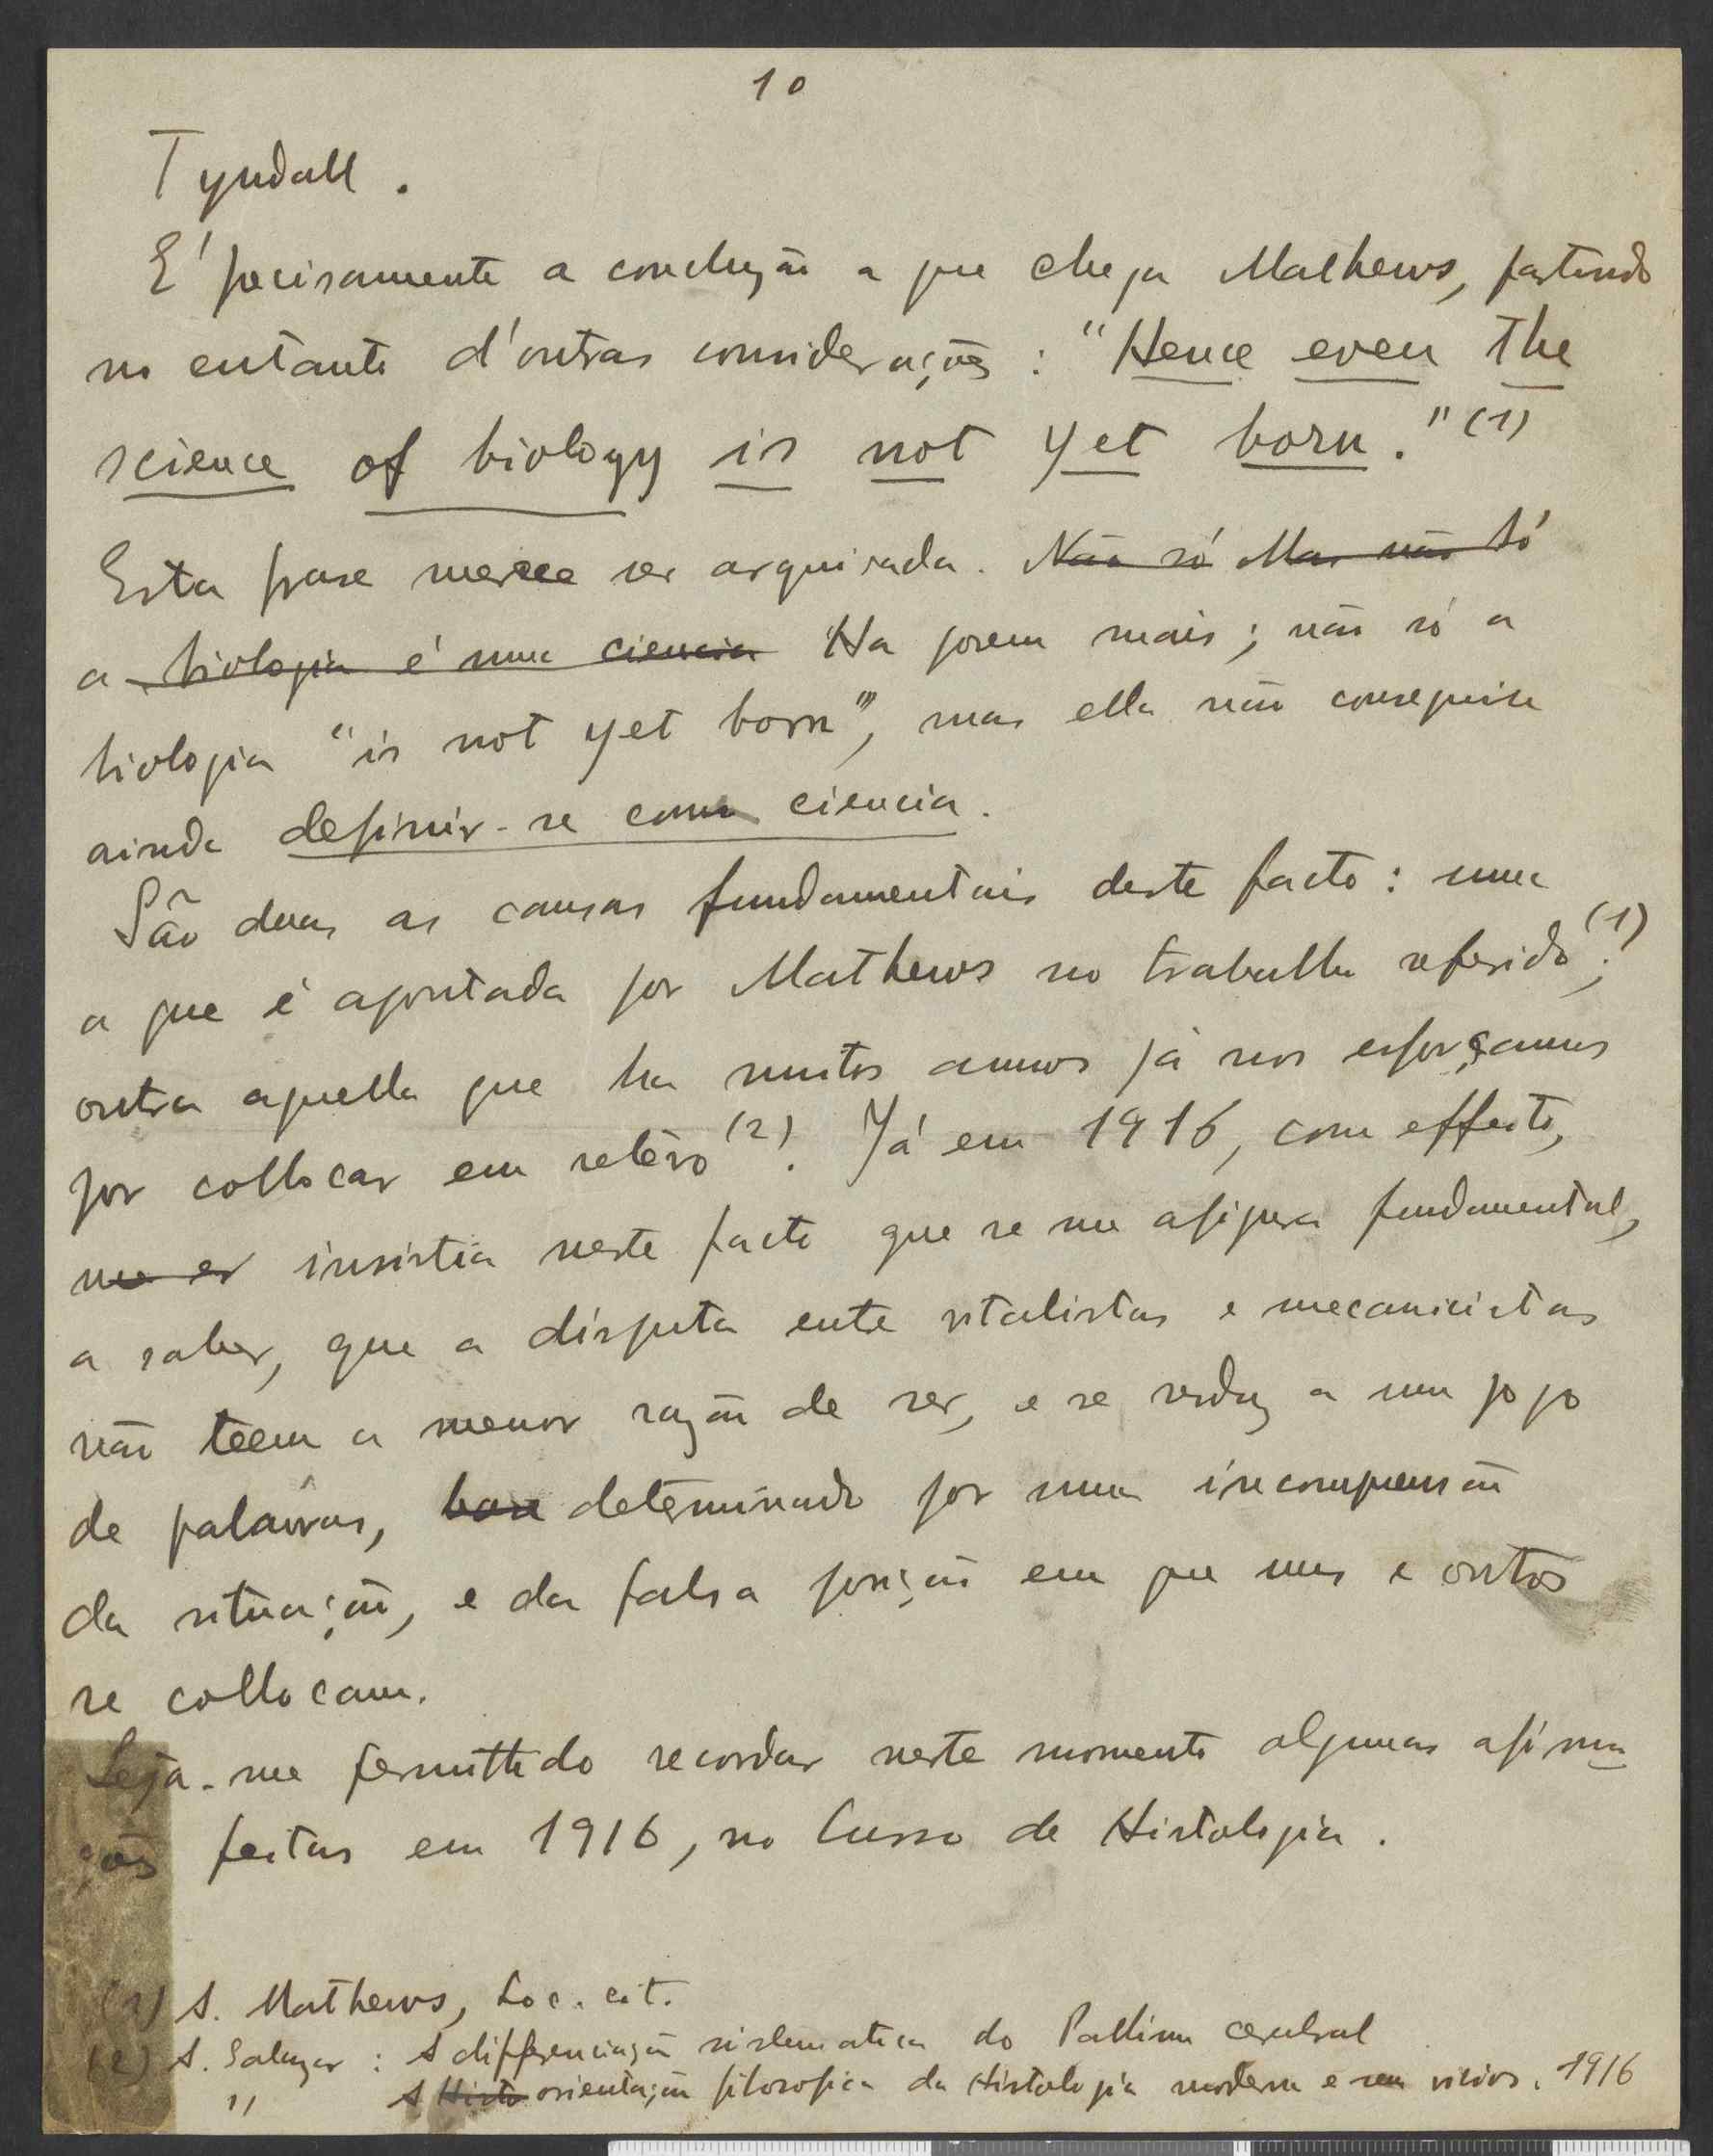 10
Tyndall.
E' precisamente a conclusão a que chega Mathews, partindo
no entanto d'outras considerações : "Hence even the
science of biology is not yet born." (1)
Esta frase merece ser arquivada. Não só Mas não só
a biologia é uma ciencia Ha porem mais; não só a
biologia "is not yet born", mas ella não conseguiu
ainda definir-se como ciencia.
São duas as causas fundamentais deste facto: uma
a que é apontada por Mathews no trabalho referido (1);
outra aquella que ha muitos annos já nos esforçamos
por collocar em relêvo (2). Já em 1916, com effeito,
me es insistia neste facto que se me afigura fundamental,
a saber, que a disputa entre vitalistas e mecanicistas
não teem a menor razão de ser, e se reduz a um jogo
de palavras, determinado por uma incompreensão
da situação, e da falsa posição em que uns e outros
se collocam.
Seja-me permittido recordar neste momento algumas afirma-
ções feitas em 1916, no Curso de Histologia.
(1) A. Mathews, Loc. cit.
(2) A. Salazar : A differenciação sistematica do Pallium cerebral
" A Histo orientação filosofica da Histologia moderna e seus vicios. 1916